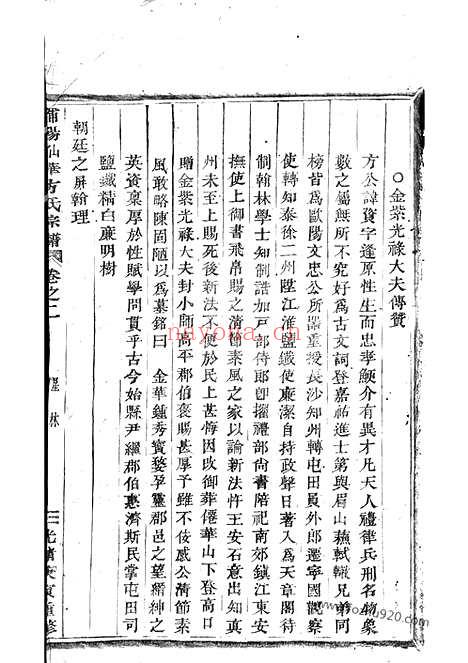 ○金紫光祿大夫傳贊
方公諱資字逢原性生而忠孝鯁介有異才凡天人禮律兵刑名物象
數之屬無所不究好爲古文詞登嘉祐進士第與眉山蘇軾轍兄弟同
榜皆爲歐陽文忠公所器重授長沙知州轉屯田員外郎遷寧國觀察
使轉知泰徐二州陞江淮鹽鐵使廉潔自持政聲日著入爲天章閣待
制翰林學士知制誥加戶部侍郎卽擢禮部尚書陪祀南郊鎮江東安
撫使上御書飛帛賜之清節素風之家以論新法忤王安石意出知真
州未至上賜死後新法不便於民上甚悔因改御葬僊華山下登高口
贈金紫光祿大夫封小師高平郡伯褒賜甚厚予雖不佞感公清節素
風敢略陳固陋以爲墓銘曰　金華鍾秀寶婺孕靈郡邑之望縉紳之
英資稟厚於性賦學問貫乎古今始縣尹繼郡伯惠濟斯民掌屯田司
鹽鐵精白廉明樹
朝廷之屏翰理
浦陽仙華方氏宗譜
卷之二
光緒庚寅重修
nayona.cn
www.fozhu920.com